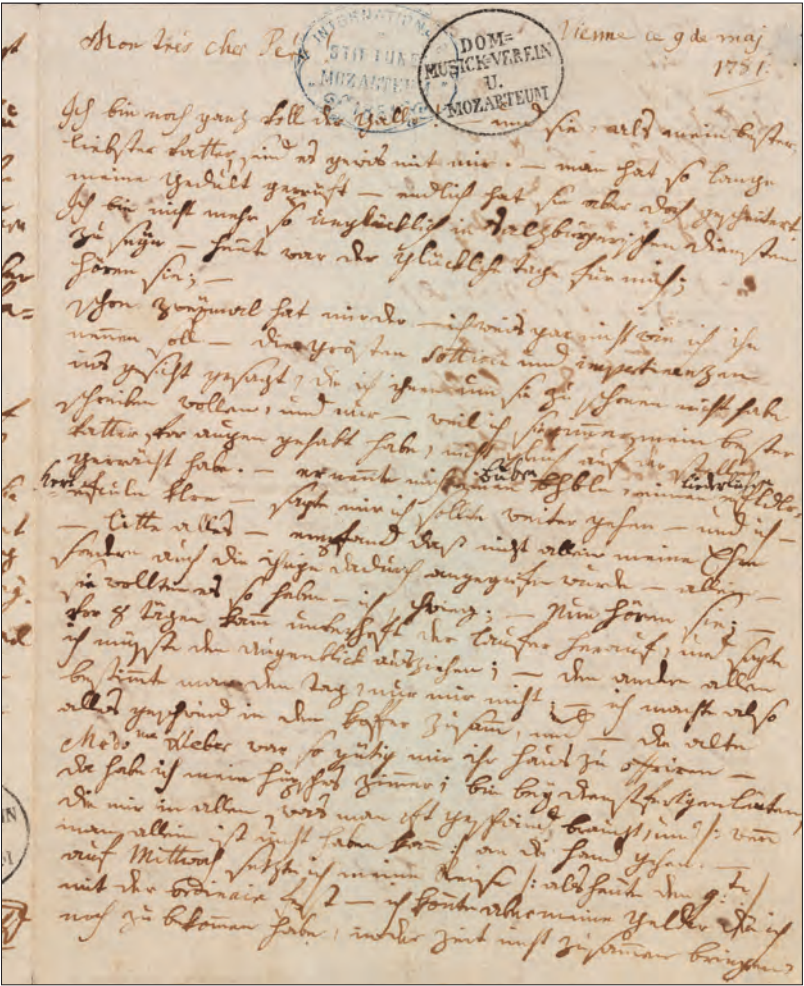 Mon trés cher Pe
Vienne ce 9 de maj
1781.
INTERNATION
STIFTUNG
MOZARTEUM
DOM=
MUSICK=VEREIN
U.
MOZARTEUM
Ich bin noch ganz voll der Galle! — und sie, als mein bester,
liebster vatter, sind es gewis mit mir. — man hat so lange
meine Gedult geprüft — endlich hat sie aber doch gescheitert
Ich bin nicht mehr so unglücklich in Salzburgerischen diensten
zu seyn — heute war der glückliche tage für mich;
hören sie; —
schon zweymal hat mir der — ich weis gar nicht wie ich ihn
nennen soll — die grösten sottisen und impertinenzen
ins gesicht gesagt, die ich ihnen um sie zu schonen nicht habe
schreiben wollen, und nur — weil ich sie immer mein bester
vatter vor augen gehabt habe, nicht gleich auf der stelle
buben liederlichen
gerächt habe. — er nennte mich einen einen
kerl
— sagte mir ich sollte weiter gehen — und ich —
— litte alles — empfand daß nicht allein meine Ehre
sondern auch die ihrige dadurch angegriffen wurde — allein —
sie wollten es so haben — ich schwieg; — Nun hören sie; —
vor 8 tägen kamm unverhoft der laufer herauf, und sagte
ich müsste den augenblick ausziehen; — den andern allen
bestimte man den tag, nur mir nicht; — ich machte also
alles geschwind in den koffer zusam, und — die alte
Mad:me Weber war so gütig mir ihr haus zu offriren —
da habe ich mein hüpsches zimmer; bin bey dienstfertigen leuten,
die mir in allem, was man oft geschwind braucht, und /: wenn
man allein ist nicht haben kann :/ an die hand gehen. —
auf Mittwoch setzte ich meine Reise /: als heute den 9:ten :/
mit der ordinaire fest — ich konte aber meine gelder die ich
noch zu bekommen habe, in der zeit nicht zusammen bringen,